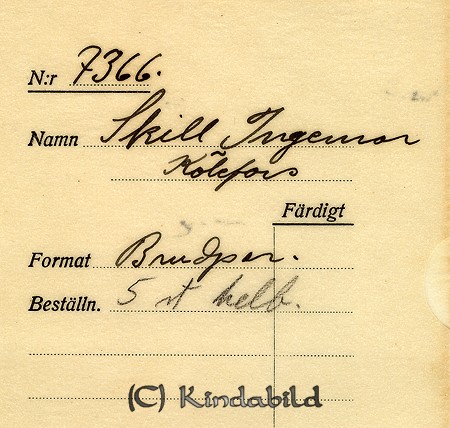 N:r 7366.
Namn Skill Ingemar
Kölefors
Färdigt
Format Brudpar.
Beställn. 5 st helb.
(C) Kindabild